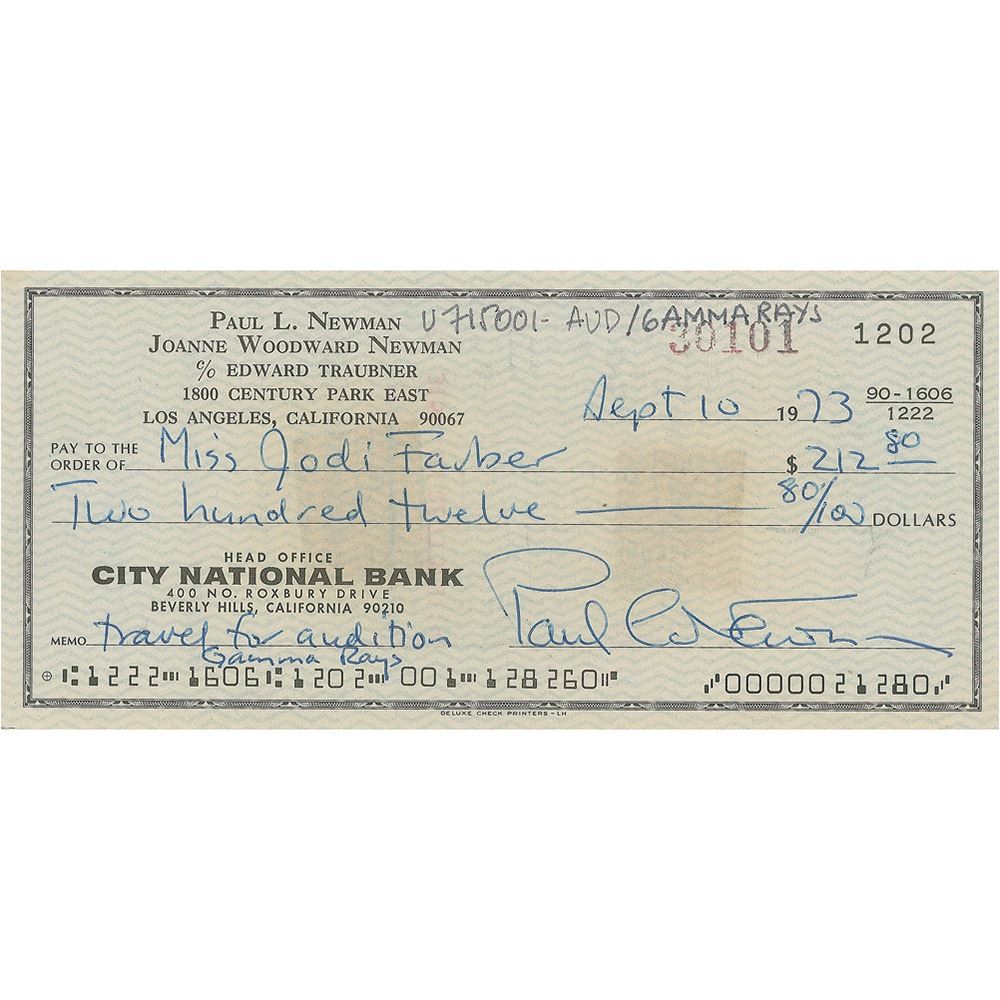 PAUL L. NEWMAN U715001- AUD/GAMMA RAYS
JOANNE WOODWARD NEWMAN 30101 1202
c/o EDWARD TRAUBNER
1800 CENTURY PARK EAST
LOS ANGELES, CALIFORNIA 90067
Sept 10 1973 90-1606
1222
PAY TO THE
ORDER OF Miss Jodi Farber $ 212 80
Two hundred twelve 80/100 DOLLARS
HEAD OFFICE
CITY NATIONAL BANK
400 NO. ROXBURY DRIVE
BEVERLY HILLS, CALIFORNIA 90210
MEMO travel for audition Paul L. Newman
Gamma Rays
⑆1222⑉1606⑆1202⑉001⑉128260⑈ ⑇0000021280⑇
DELUXE CHECK PRINTERS - LH